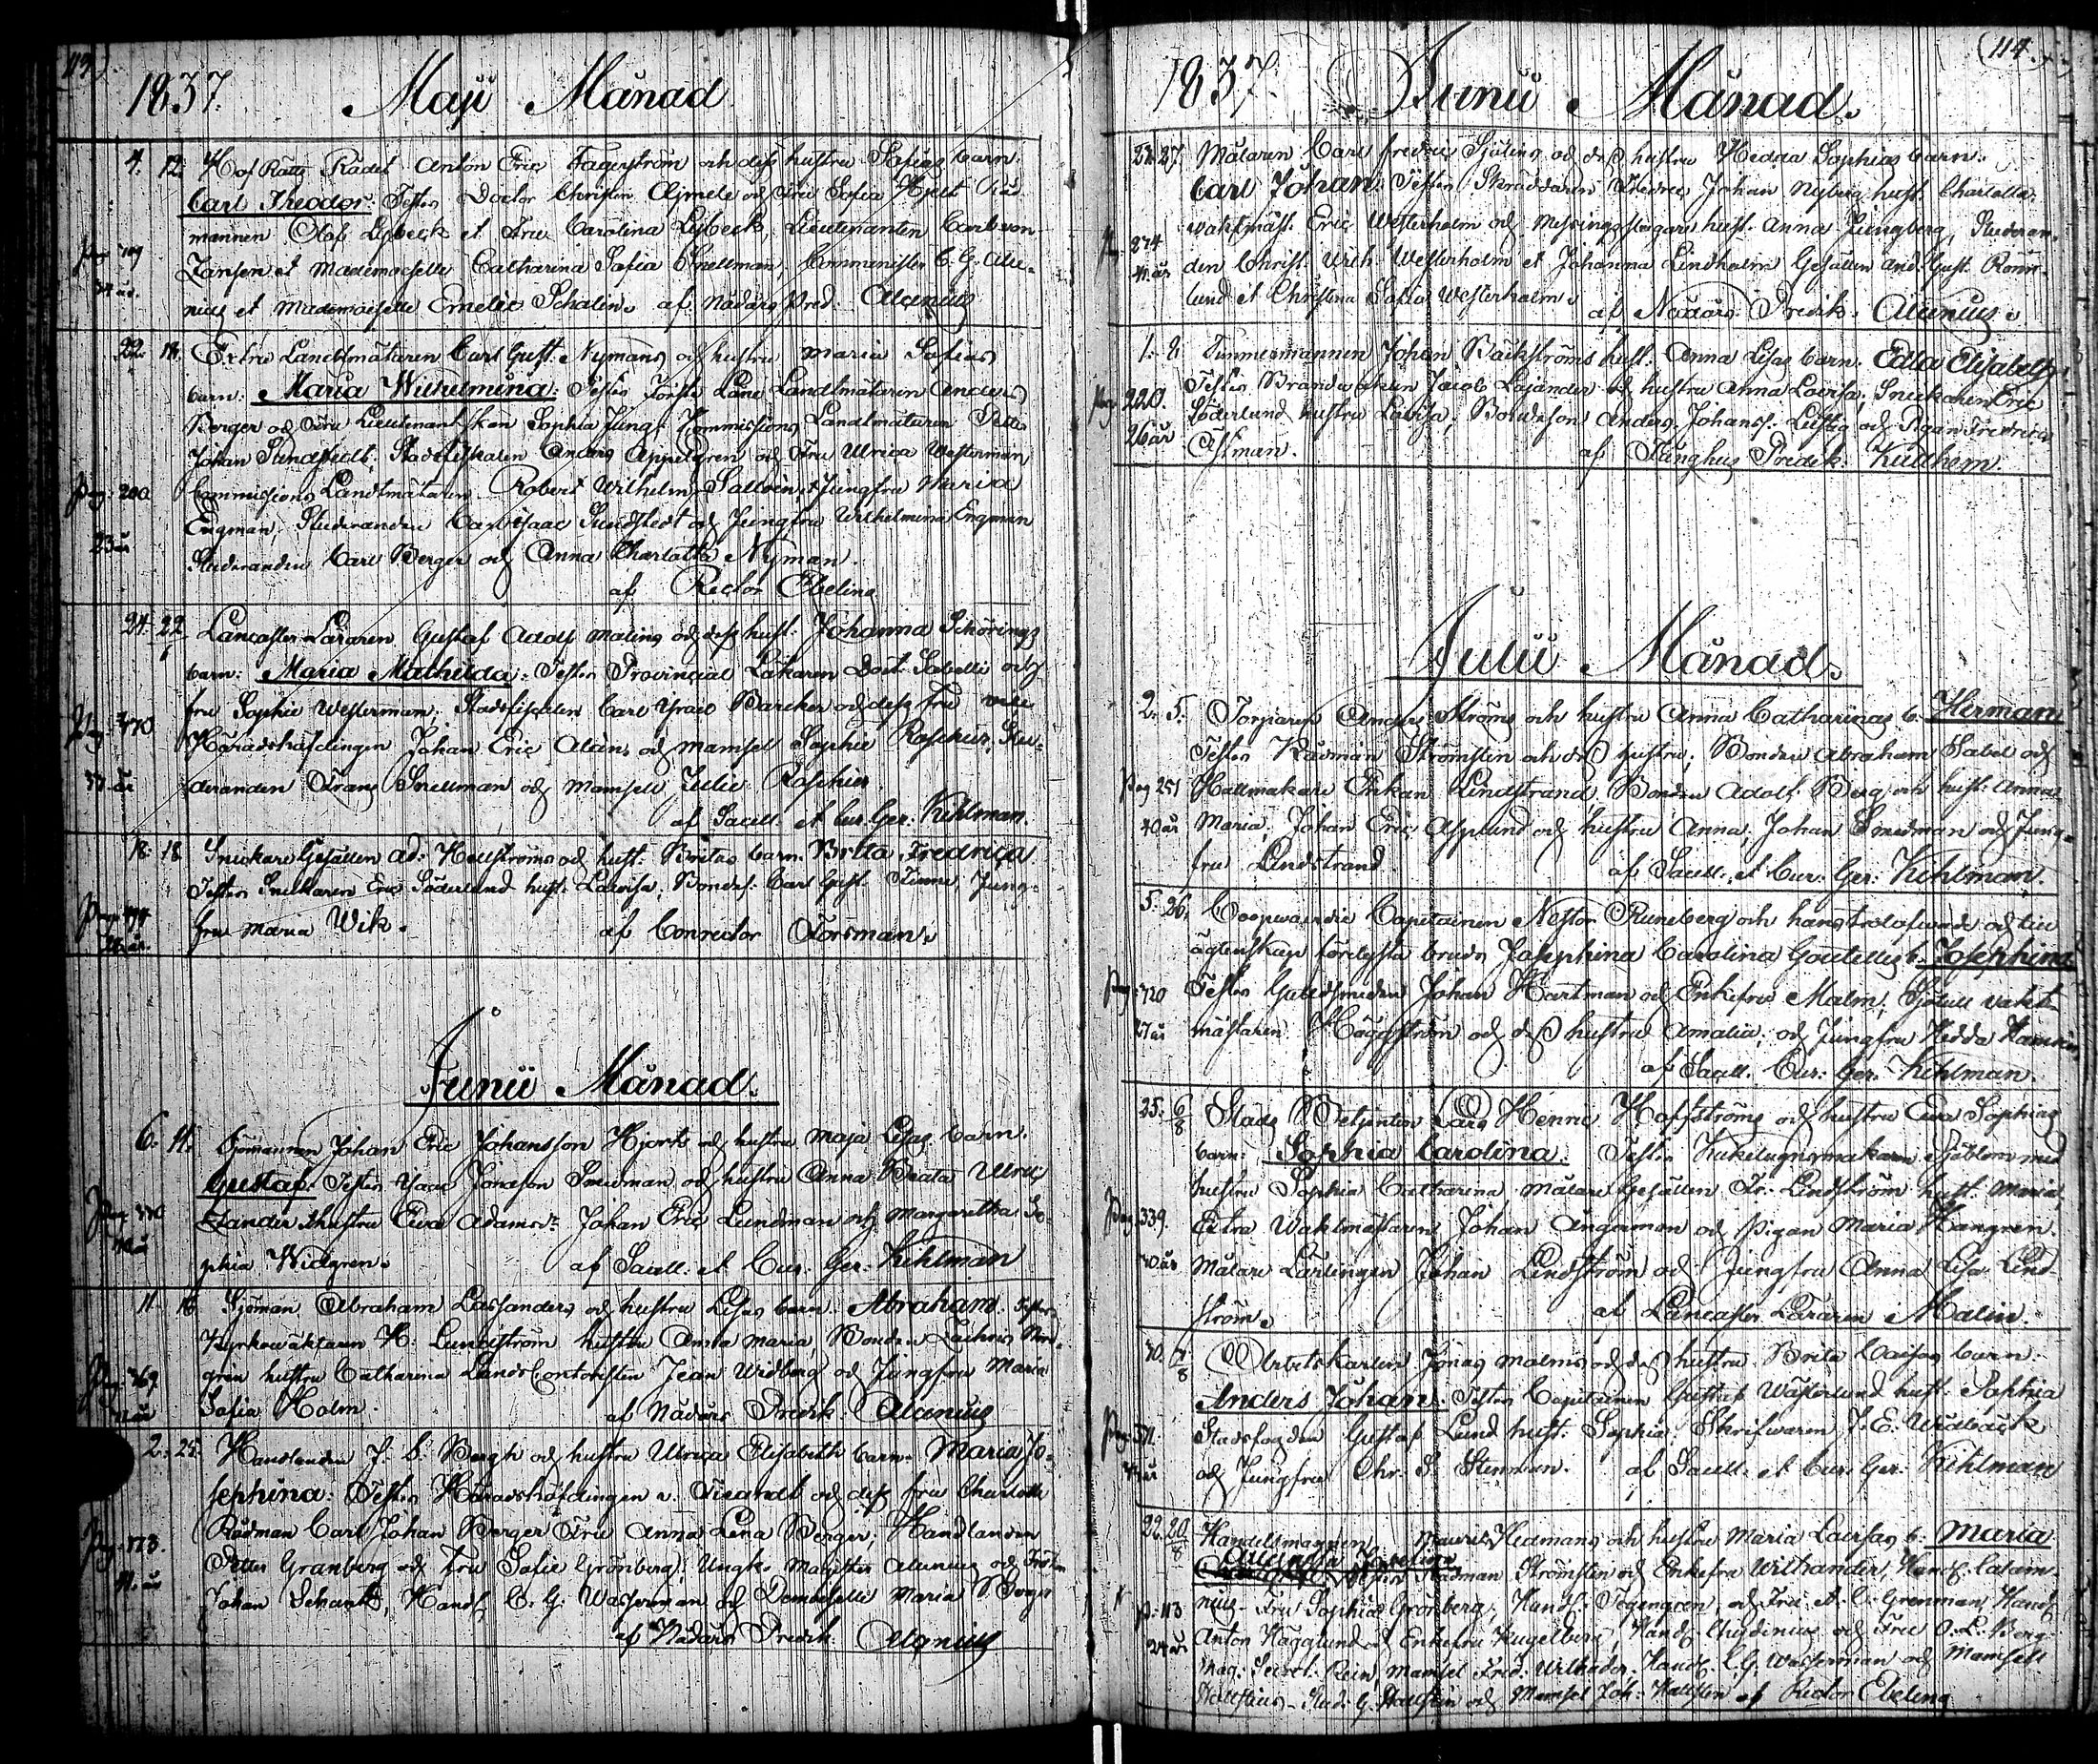 113.)
1837. Maji Månad
4. 12. Hof Rätts Rådet Anton Eric Fagerström och dess hustru Sofias barn
Carl Theodor. Testes Doctor Christian Ajmele och Fru Sofia Hjelt Råd-
mannen Olof Lybeck et Fru Carolina Lybeck, Lieutenanten Carl von
Pag: 109 Jansen et Mademoiselle Catharina Sofia Snellman, Comminister C. G. Ala-
34 år. nius et Mademoiselle Emelie Schalin. af Nådårs Pred: Alcenius
22. 18. Extra Landtmätaren Carl Gust. Nymans och hustru Maria Sofias
barn: Maria Wilhelmina. Testes Förste Lane Landtmätaren Anders
Berger och Fru Lieutenantskan Sophia Jung. Kommissions Landtmätaren
Johan Sundstedt, Stadsfiskalen Anders Appelgren och Fru Ulrica Westerman
Pag: 200 Commissions Landtmätaren Robert Wilhelm Salloin, et Jungfru Maria
Engman. Studeranden Carl Isaac Sundstedt och Jungfru Wilhelmina Engman
23 år Studeranden Carl Berger och Anna Charlotta Nyman.
af Rector Ebeling
24. 22/6 Lancaster Läraren Gustaf Adolf Malins och dess hust. Johanna Schörings
barn: Maria Mathilda: Testes Provincial Läkaren Doct. Sabelli och
fru Sophie Westerman; Stadsfiscalen Carl Israel Barcker och dess Fru vice
Pag: 370 Häradshöfdingen Johan Eric Aláns och Mamsel Sophie Roschier, Stu-
33 år deranden Frans Snellman och Mamsell Julie Roschier
af Sacell. et Cur. Ger. Kihlman.
18. 18 Snickare Gesällen Ad: Hellströms och hust. Britas barn. Brita Fredrica
Testes Snickaren Eric Söderlund hust. Lovisa; Bondes. Carl Gust. Finne, Jung-
fru Maria Wik. af Conrector Forsman.
Junii Månad.
6. 11. Sjömannen Johan Eric Johansson Hjorts och hustru Maja Lisas barn.
Gustaf. Testes Isaac Jonasson Smedman och hustru Anna Beata Ulric
Pag: 370 Zander et hustru Eva Adamsdr. Johan Eric Lundman och Margaretha So-
phia Widgren. af Sacell. et Cur. Ger. Kihlman
11. 16 Sjöman Abraham Lassanders och hustru Lisas barn. Abraham. Testes
Kyrkowäktaren H. Lundström hustru Anna Maria, Bonden Zachris Nord-
Pag: 369 gren hustru Catharina Lands Contoristen Jean Widberg och Jungfru Maria
Sofia Holm. af Nådårs Predik Alcenius
2. 25. Handlanden J. L. Bergh och hustru Ulrica Elisabeth barn. Maria Jo-
sephina. Testes Häradshöfdingen v. Tieandt och dess fru Charlotte
Rådman Carl Johan Berger Fru Anna Lena Berger; Handlanden
Pag: 173. Petter Granberg och Fru Sofie Grönberg; Ungk. Magister Alcenius och Fröken
41 år Johan Schantz, Handl. C. G. Wasserman och Demoiselle Maria S. Berger
af Nådårs Predik. Alcenius
(114.)
1837. Junii Månad.
23. 27. Målaren Carl Fredric Sjölins och dess hustru Hedda Sophias barn:
Carl Johan. Testes Skräddaren Fredric Johan Nyberg hust. Charlotta.
Pag 874 waktmäst. Eric Westerholm och Messingsslagare hust. Anna Ljungberg, Studeran-
41. år den Christ. Wilh. Westerholm et Johanna Lindholm Gesällen And. Gust. Rönn-
lund et Christina Sofia Westerholm. af Nådårs Predik. Alcenius.
1. 8 Timmermannen Johan Bäckströms hust. Anna Lisas barn. Edla Elisabeth
Pag 220. Testes Brandwakten Jacob Lasander och hustru Anna Lovisa; Snickaren Eric
26 år Söderlund hustru Lovisa, Bondeson Anders Johanss. Lustig och Pigan Fredrica
Åsman. af Tuckthus Predik. Kjellhem.
Julii Månad.
2. 5. Torparen Anders Ströms och hustru Anna Catharinas b. Herman
Testes Rådman Strömsten och dess hustru; Bonden Abraham Sabel och
Pag 251 Hattmakare Enkan Lindstrand, Bonden Adolf Berg och hust. Anna
40 år Maria, Johan Eric Asplund och hustru Anna, Johan Smedman och Jung-
fru Lindstrand af Sacell. et Cur: Ger: Kihlman.
5. 26. Coopvaerdie Capitainen Nestor Runeberg och hans trolofwade och till
ägtenskap förelysta bruds Josephina Carolina Goutellies b. Josephina
Pag: 720 Testes Guldsmeden Johan Hartman och Enkefru Malm; Sjötull vakt-
27 år mästaren Häggström och dess hustru Amalia; och Jungfru Hedda
af Sacell. Cur: Ger. Kihlman.
25. 6/8 Stads Betjenten Lars Henric Hoffströms och hustru Eva Sophias
barn: Sophia Carolina. Testes Kakelugnsmakaren Sjöblom med
hustru Sophia Catharina, Målare Gesällen Fr. Lindström hust. Maria,
Pag: 339. Extra Waktmästaren Johan Ångerman och Pigan Maria Hangren.
30. år Målare Lärlingen Johan Lindström och Jungfru Anna Lisa Lind-
ström. af Lancaster Läraren Malin.
30. 6/8 Arbetskarlen Jonas Malms och dess hustru Brita Caisas barn.
Anders Johan. Testes Capitainen Gustaf Wästerlund hust. Sophia
Pag: 371. Stadsfogden Gustaf Lund hust. Sophia, Skrifwaren J. E. Widbäck
och Jungfru Chr. S. Stenman. af Sacell. et Cur. Ger. Kihlman
22. 20/8 Handelsmannen Maurits Hedmans och hustru Maria Lovisas b. Maria
Rådman Strömsten och Enkefru Wilhander, Handl. Calam-
p: 113 nius Fru Sophia Grönberg, Handl. Tegengren, och Fru A. C. Grenman, Handl.
24 år Anton Hägglund och Enkefru Kugelberg, Handl. Chydenius och Fru O. L. Berg.
Mag: Secret. Rein, Mamsel Fred. Wilhader. Handl. C. G. Wasserman och Mamsell
Hallstius. Stud. G. Hallstin och Mamsel Joh: Hallsten af Rector Ebeling